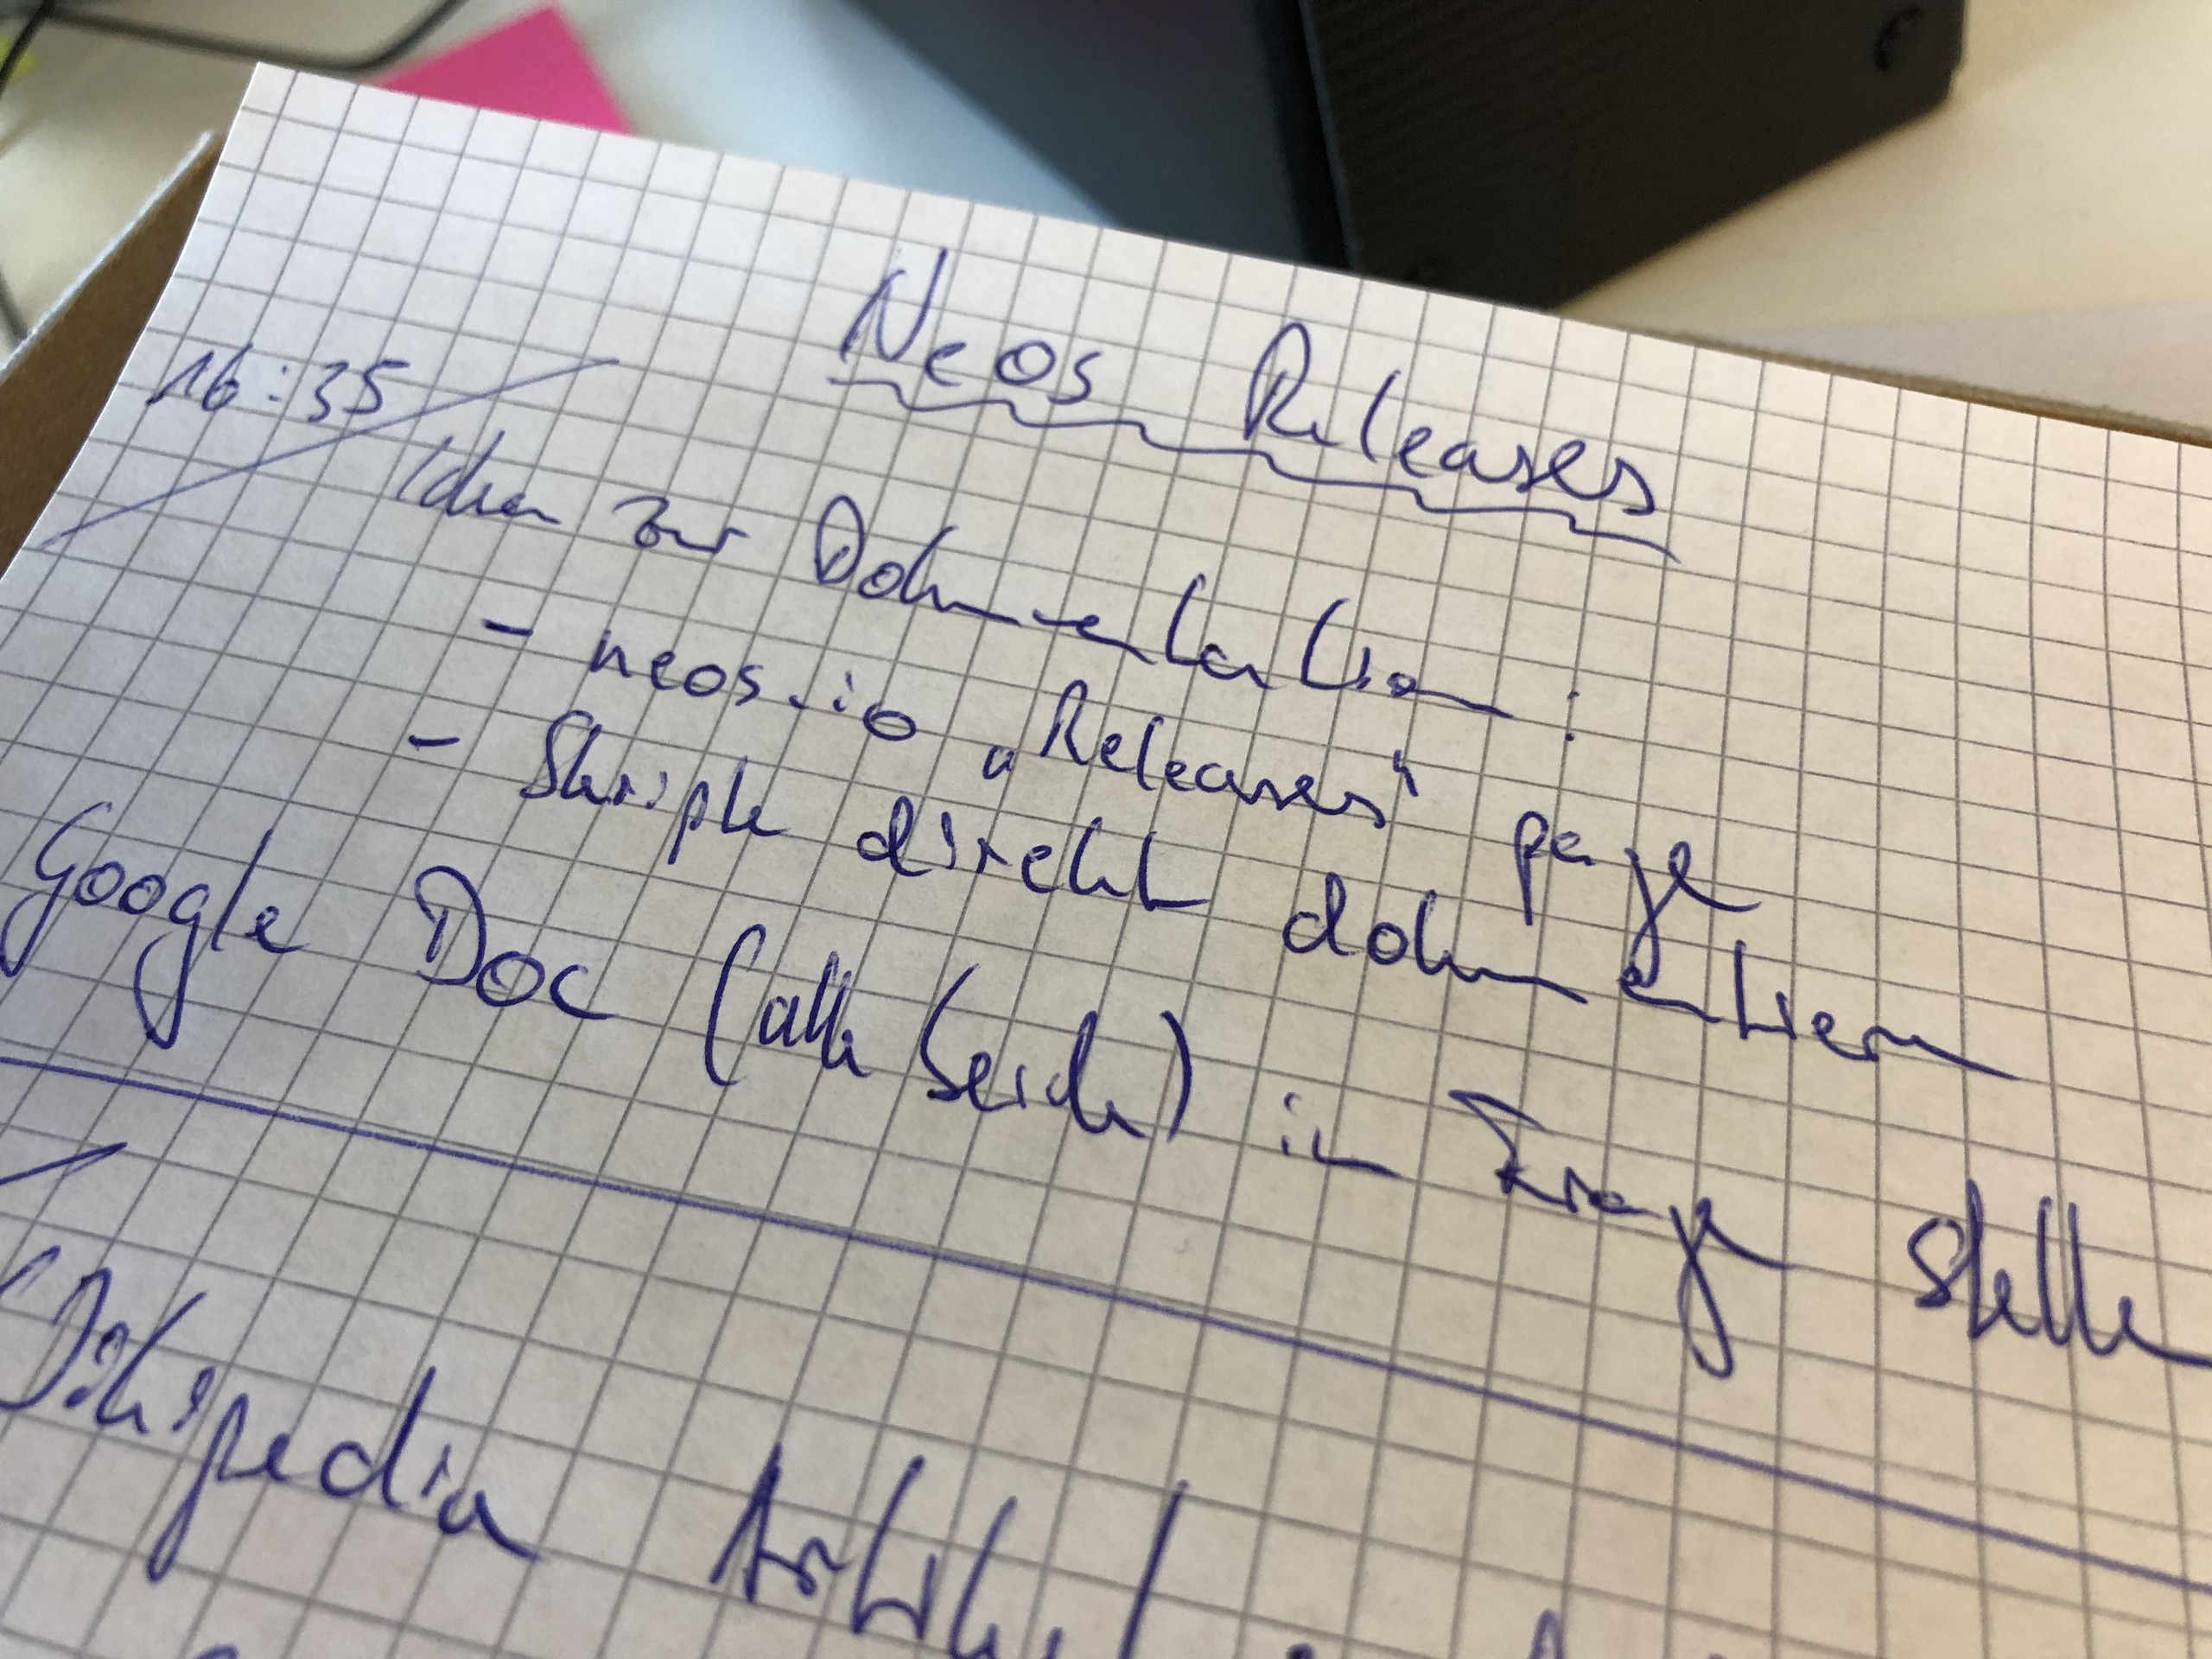 Neos Releases
16:35
Ideen zur Dokumentation:
- neos.io „Releases“ page
- Skripte direkt dokumentieren
Google Doc (alle beide) in Frage stelle
Wikipedia Artikel